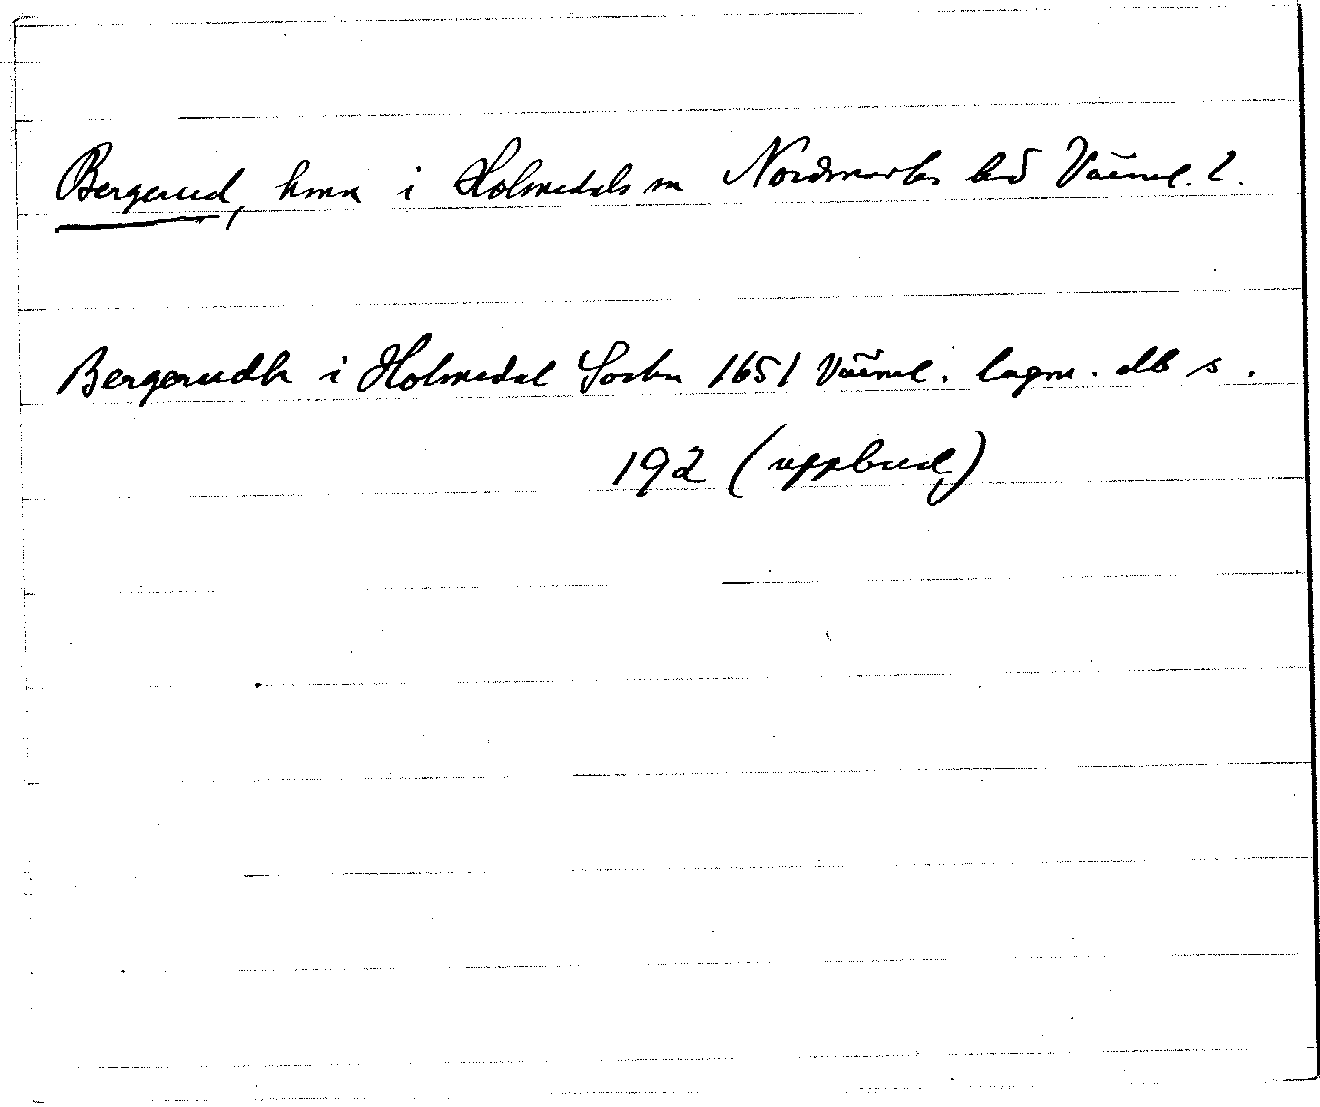 Bergerud, hmn i Holmedals sn Nordmarks hd Värml. l.
Bergerudh i Holmedal Sochn 1651 Värml. lagm. dlb s.
192 (uppbud)